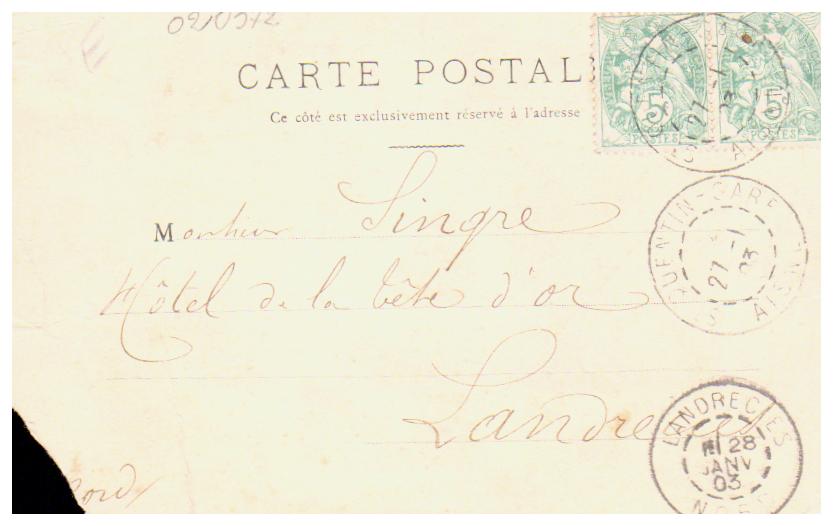 CARTE POSTAL
Ce côté est exclusivement réservé à l'adresse
Monsieur Singre
Hôtel de la tête d'or
Landrecies
Nord
5 5
POSTES POSTES
QUENTIN-GARE
27 -1
03
AISNE
LANDRECIES
28
JANV
03
NORD